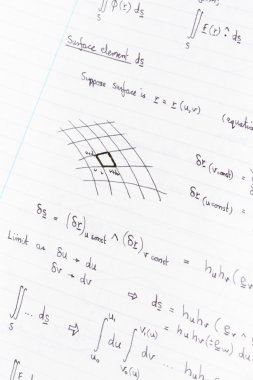 ∬_S φ(r) ds
∬_S F(r) · ds
Surface element ds
Suppose Surface is r = r(u,v) (equation
δr (v const) =
δr (u const) =
δs = (δr)u const ∧ (δr)v const = hu hv (e
Limit as δu → du
δv → dv
⇒ ds = hu hv (e v ∧
= hu hv (± e w) du
∬_S ... ds ⇒ ∫_{u0}^{u1} du ∫_{V0(u)}^{V1(u)} dv ... hu hv